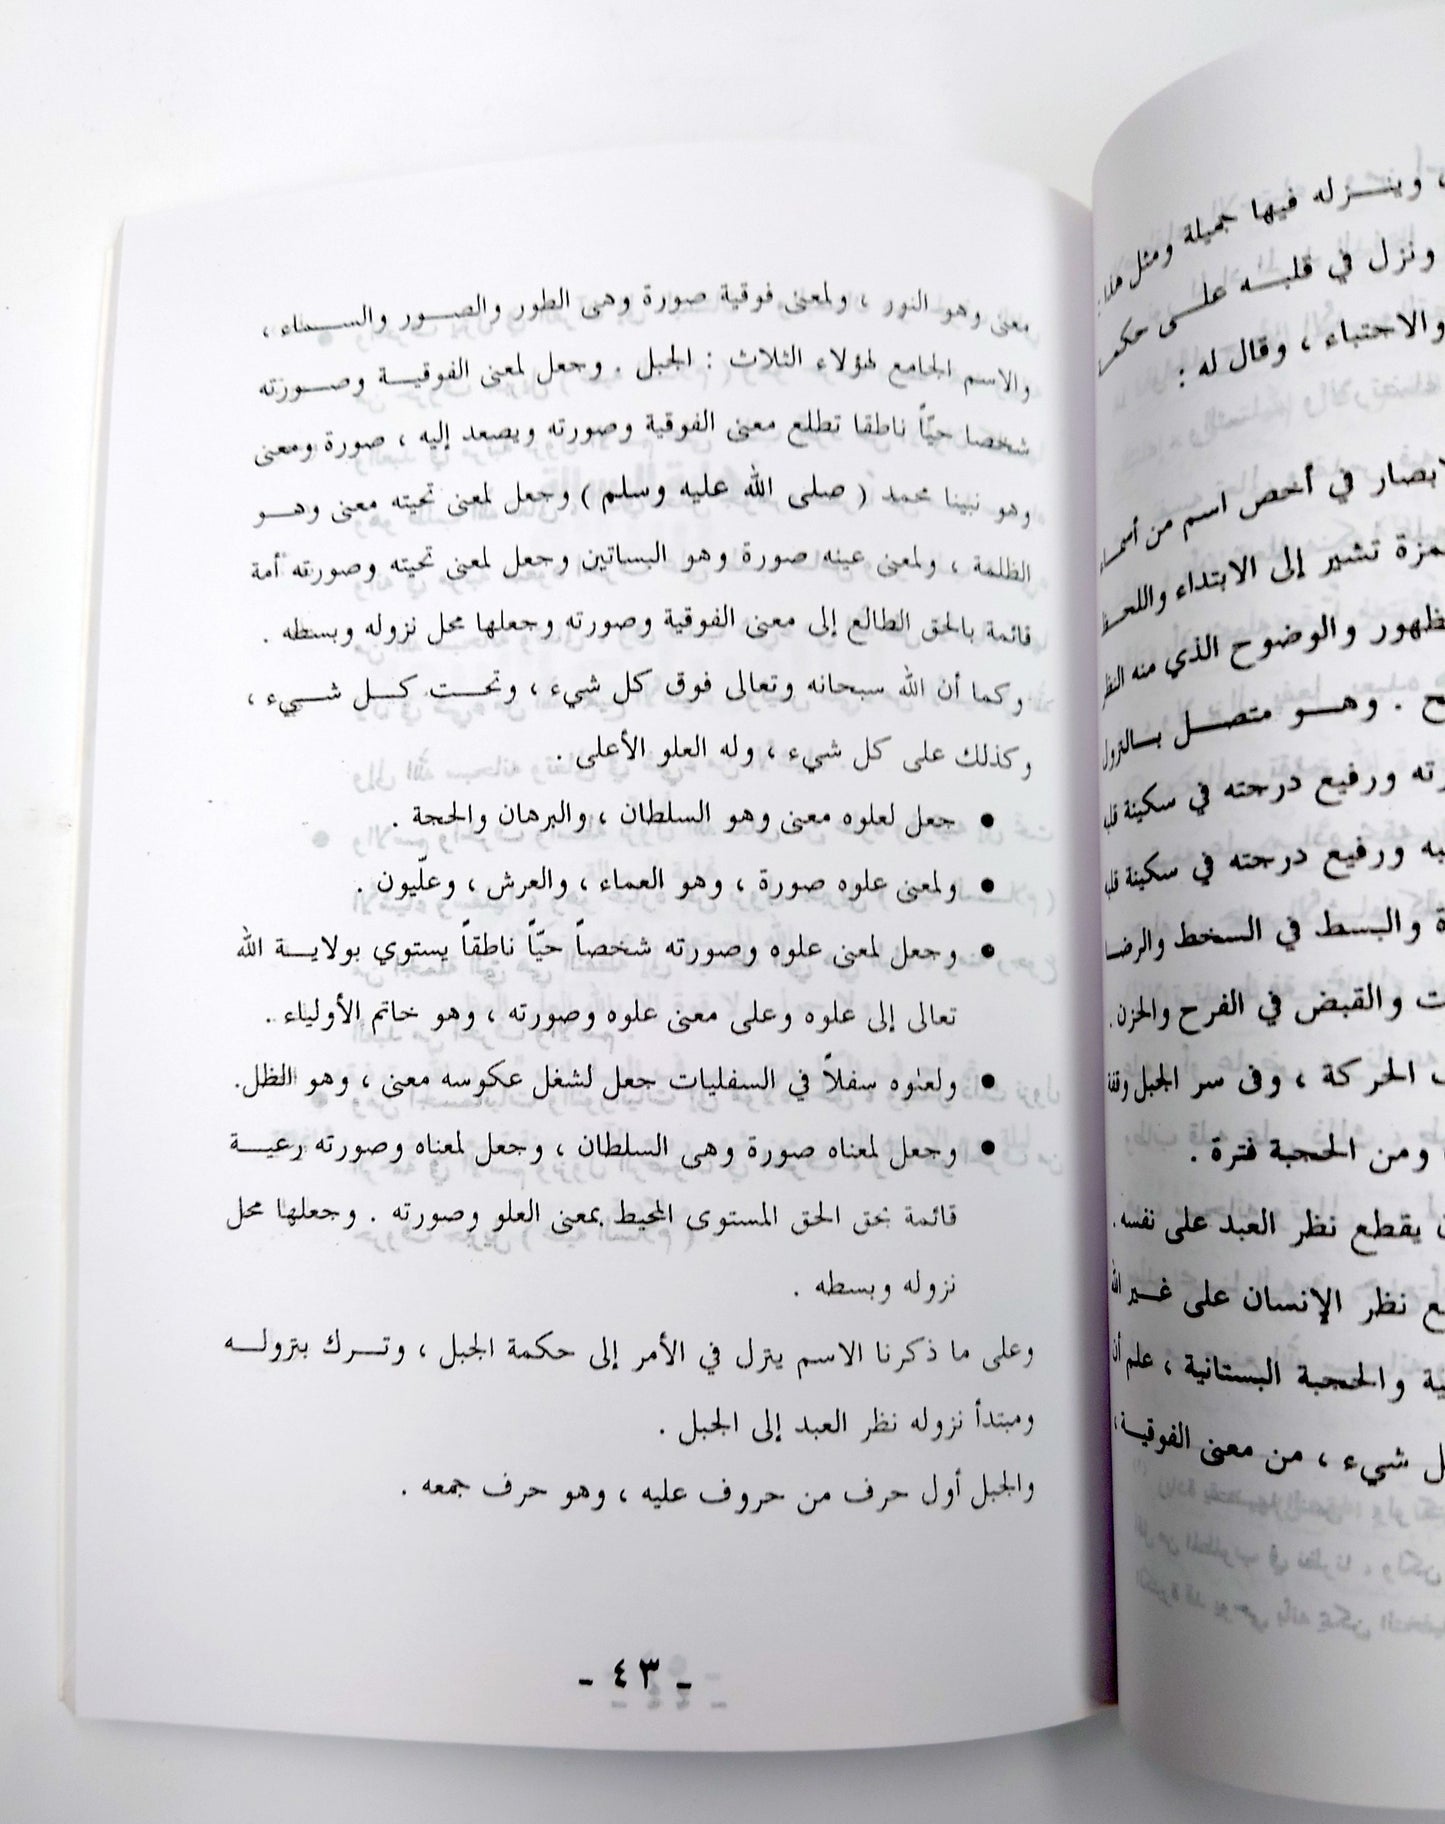 ، وينــزله فيها جميلة ومثل هذا
ونزل في قلبــه علــى حكمة
والاحتباء ، وقال له :
لابصار في أخص اسم من أسماء
مزة تشير إلى الابتداء واللحظ
ظهور والوضوح الذي منه النظر
ح . وهــو متصــل بــالنزول
رته ورفيع درجته في سكينة قلبه
به ورفيع درجته في سكينة قلبه
ة والبسط في السخط والرضا
ت والقبض في الفرح والحزن .
الحركة ، وفى سر الجبل وقفة
ومن الحجبة فترة .
يقطع نظر العبد على نفسه .
ع نظر الإنسان على غــير الله
ية والحجبة البستانية ، علم أن
ل شيء ، من معنى الفوقيــة ،
معنى وهو النور ، ولمعنى فوقية صورة وهى الطور والصــور والســماء ،
والاسم الجامع لهؤلاء الثلاث : الجبل . وجعل لمعنى الفوقيــة وصــورته
شخصا حيّاً ناطقا تطلع معنى الفوقية وصورته ويصعد إليه ، صورة ومعنى
وهو نبينا محمد ( صلى الله عليه وسلم ) وجعل لمعنى تحيته معنى وهــو
الظلمة ، ولمعنى عينه صورة وهو البساتين وجعل لمعنى تحيته وصورته أمة
قائمة بالحق الطالع إلى معنى الفوقية وصورته وجعلها محل نزوله وبسطه .
وكما أن الله سبحانه وتعالى فوق كل شيء ، وتحــت كــل شــيء ،
وكذلك على كل شيء ، وله العلو الأعلى .
• جعل لعلوه معنى وهو السلطان ، والبرهان والحجة .
• ولمعنى علوه صورة ، وهو العماء ، والعرش ، وعلّيون .
• وجعل لمعنى علوه وصورته شخصاً حيّاً ناطقاً يستوي بولايــة الله
تعالى إلى علوه وعلى معنى علوه وصورته ، وهو خاتم الأولياء .
• ولعلوه سفلاً في السفليات جعل لشغل عكوسه معنى ، وهو الظل.
• وجعل لمعناه صورة وهى السلطان ، وجعل لمعناه وصورته رعيــة
قائمة بحق الحق المستوى المحيط بمعنى العلو وصورته . وجعلها محل
نزوله وبسطه .
وعلى ما ذكرنا الاسم يتزل في الأمر إلى حكمة الجبل ، وتــرك بتزولــه
ومبتدأ نزوله نظر العبد إلى الجبل .
والجبل أول حرف من حروف عليه ، وهو حرف جمعه .
- ٤٣ -